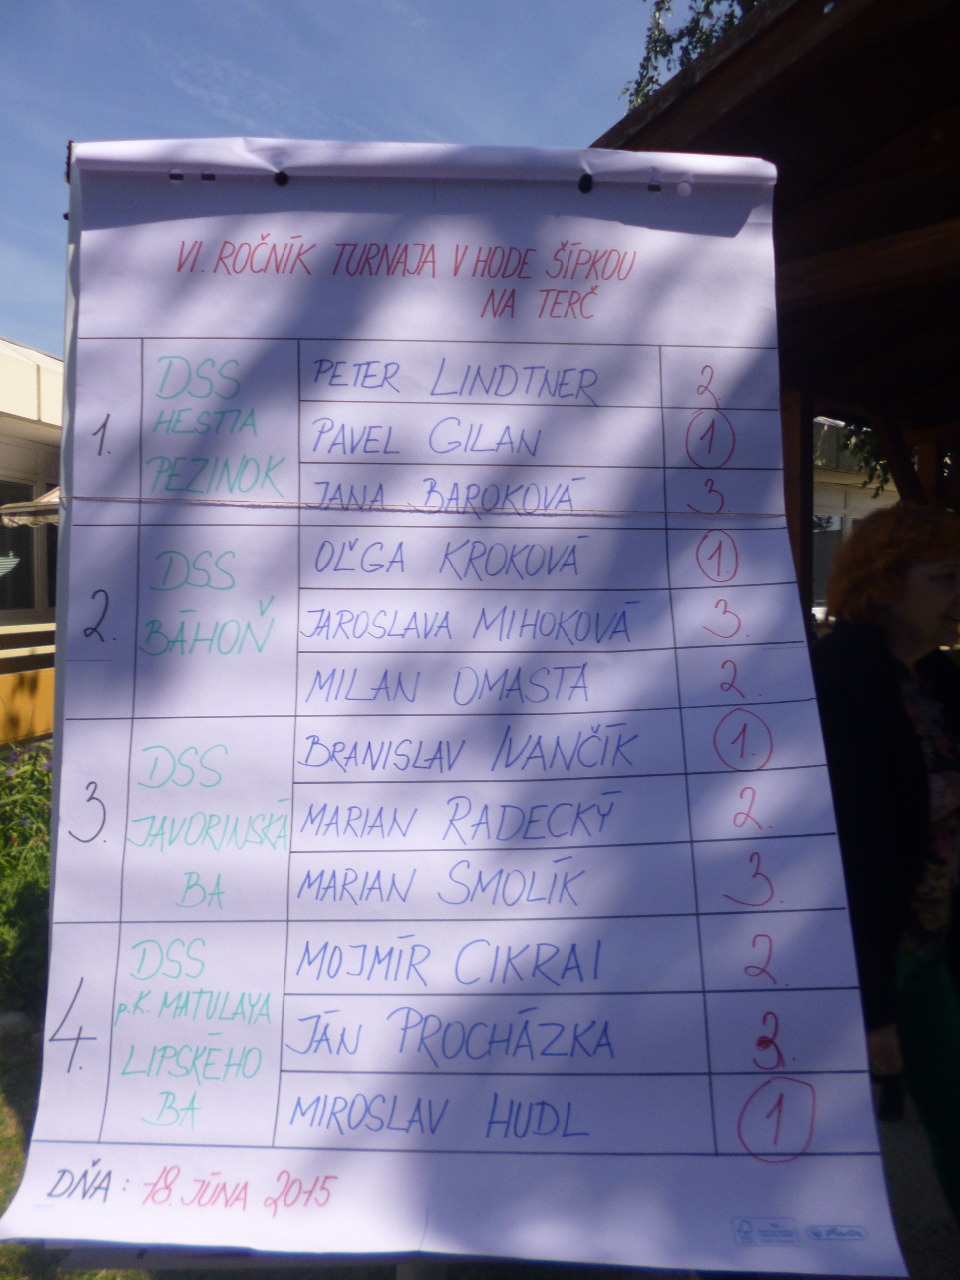 VI. ROČNÍK TURNAJA V HODE ŠÍPKOU
NA TERČ
1.
DSS
HESTIA
PEZINOK
PETER LINDTNER 2.
PAVEL GILAN 1
JANA BAROKOVÁ 3.
2.
DSS
BÁHOŇ
OĽGA KROKOVÁ 1.
JAROSLAVA MIHOKOVÁ 3.
MILAN OMASTA 2.
3.
DSS
JAVORINSKÁ
BA
BRANISLAV IVANČÍK 1.
MARIAN RADECKÝ 2.
MARIAN SMOLÍK 3.
4.
DSS
p.K. MATULAYA
LIPSKÉHO
BA
MOJMÍR CIKRAI 2.
JÁN PROCHÁZKA 3.
MIROSLAV HUDL 1
DŇA: 18. JÚNA 2015